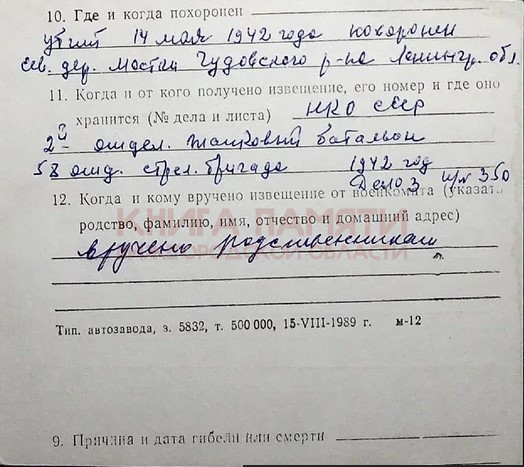 10. Где и когда похоронен
убит 14 мая 1942 года похоронен
сев. дер. Мостки Чудовского р-на Ленингр. обл.
11. Когда и от кого получено извещение, его номер и где оно
хранится (№ дела и листа) НКО СССР
2й отдел. танковый батальон
58 отд. стрел. бригада 1942 год
Дело 3 350
12. Когда и кому вручено извещение от военкомата (указать
родство, фамилию, имя, отчество и домашний адрес)
КНИГА ПАМЯТИ
ОБЛАСТИ
вручено родственникам
Тип. автозавода, з. 5832, т. 500 000, 15-VIII-1989 г. м-12
9. Причина и дата гибели или смерти